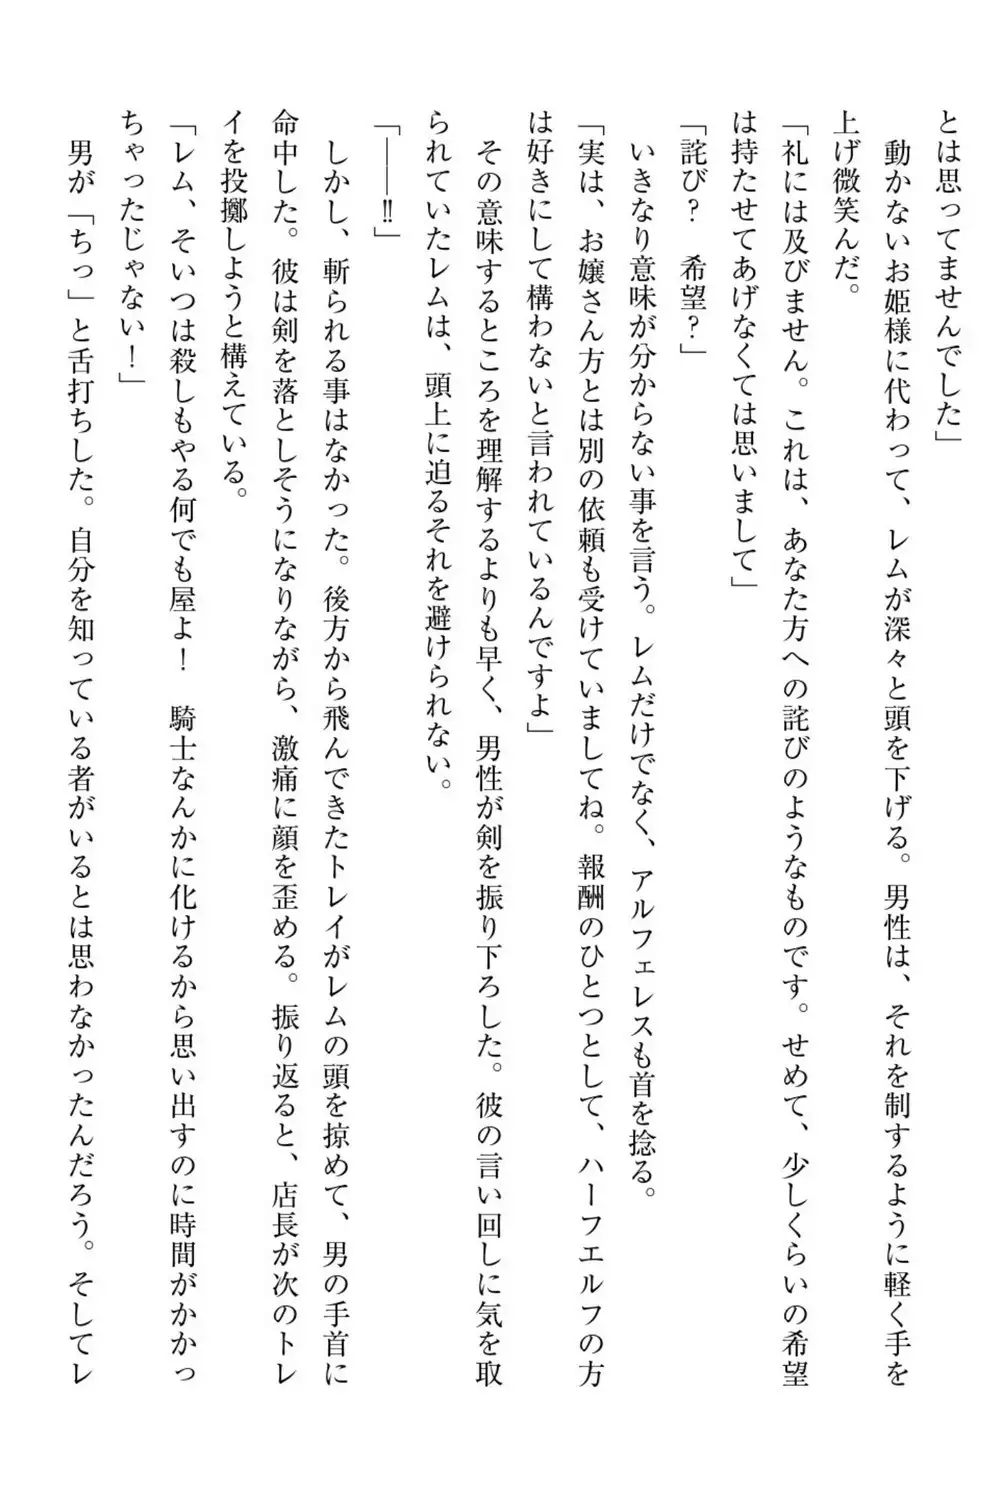 とは思ってませんでした」
　動かないお姫様に代わって、レムが深々と頭を下げる。男性は、それを制するように軽く手を
上げ微笑んだ。
「礼には及びません。これは、あなた方への詫びのようなものです。せめて、少しくらいの希望
は持たせてあげなくては思いまして」
「詫び？　希望？」
　いきなり意味が分からない事を言う。レムだけでなく、アルフェレスも首を捻る。
「実は、お嬢さん方とは別の依頼も受けていましてね。報酬のひとつとして、ハーフエルフの方
は好きにして構わないと言われているんですよ」
　その意味するところを理解するよりも早く、男性が剣を振り下ろした。彼の言い回しに気を取
られていたレムは、頭上に迫るそれを避けられない。
「――!!」
　しかし、斬られる事はなかった。後方から飛んできたトレイがレムの頭を掠めて、男の手首に
命中した。彼は剣を落としそうになりながら、激痛に顔を歪める。振り返ると、店長が次のトレ
イを投擲しようと構えている。
「レム、そいつは殺しもやる何でも屋よ！　騎士なんかに化けるから思い出すのに時間がかかっ
ちゃったじゃない！」
　男が「ちっ」と舌打ちした。自分を知っている者がいるとは思わなかったんだろう。そしてレ